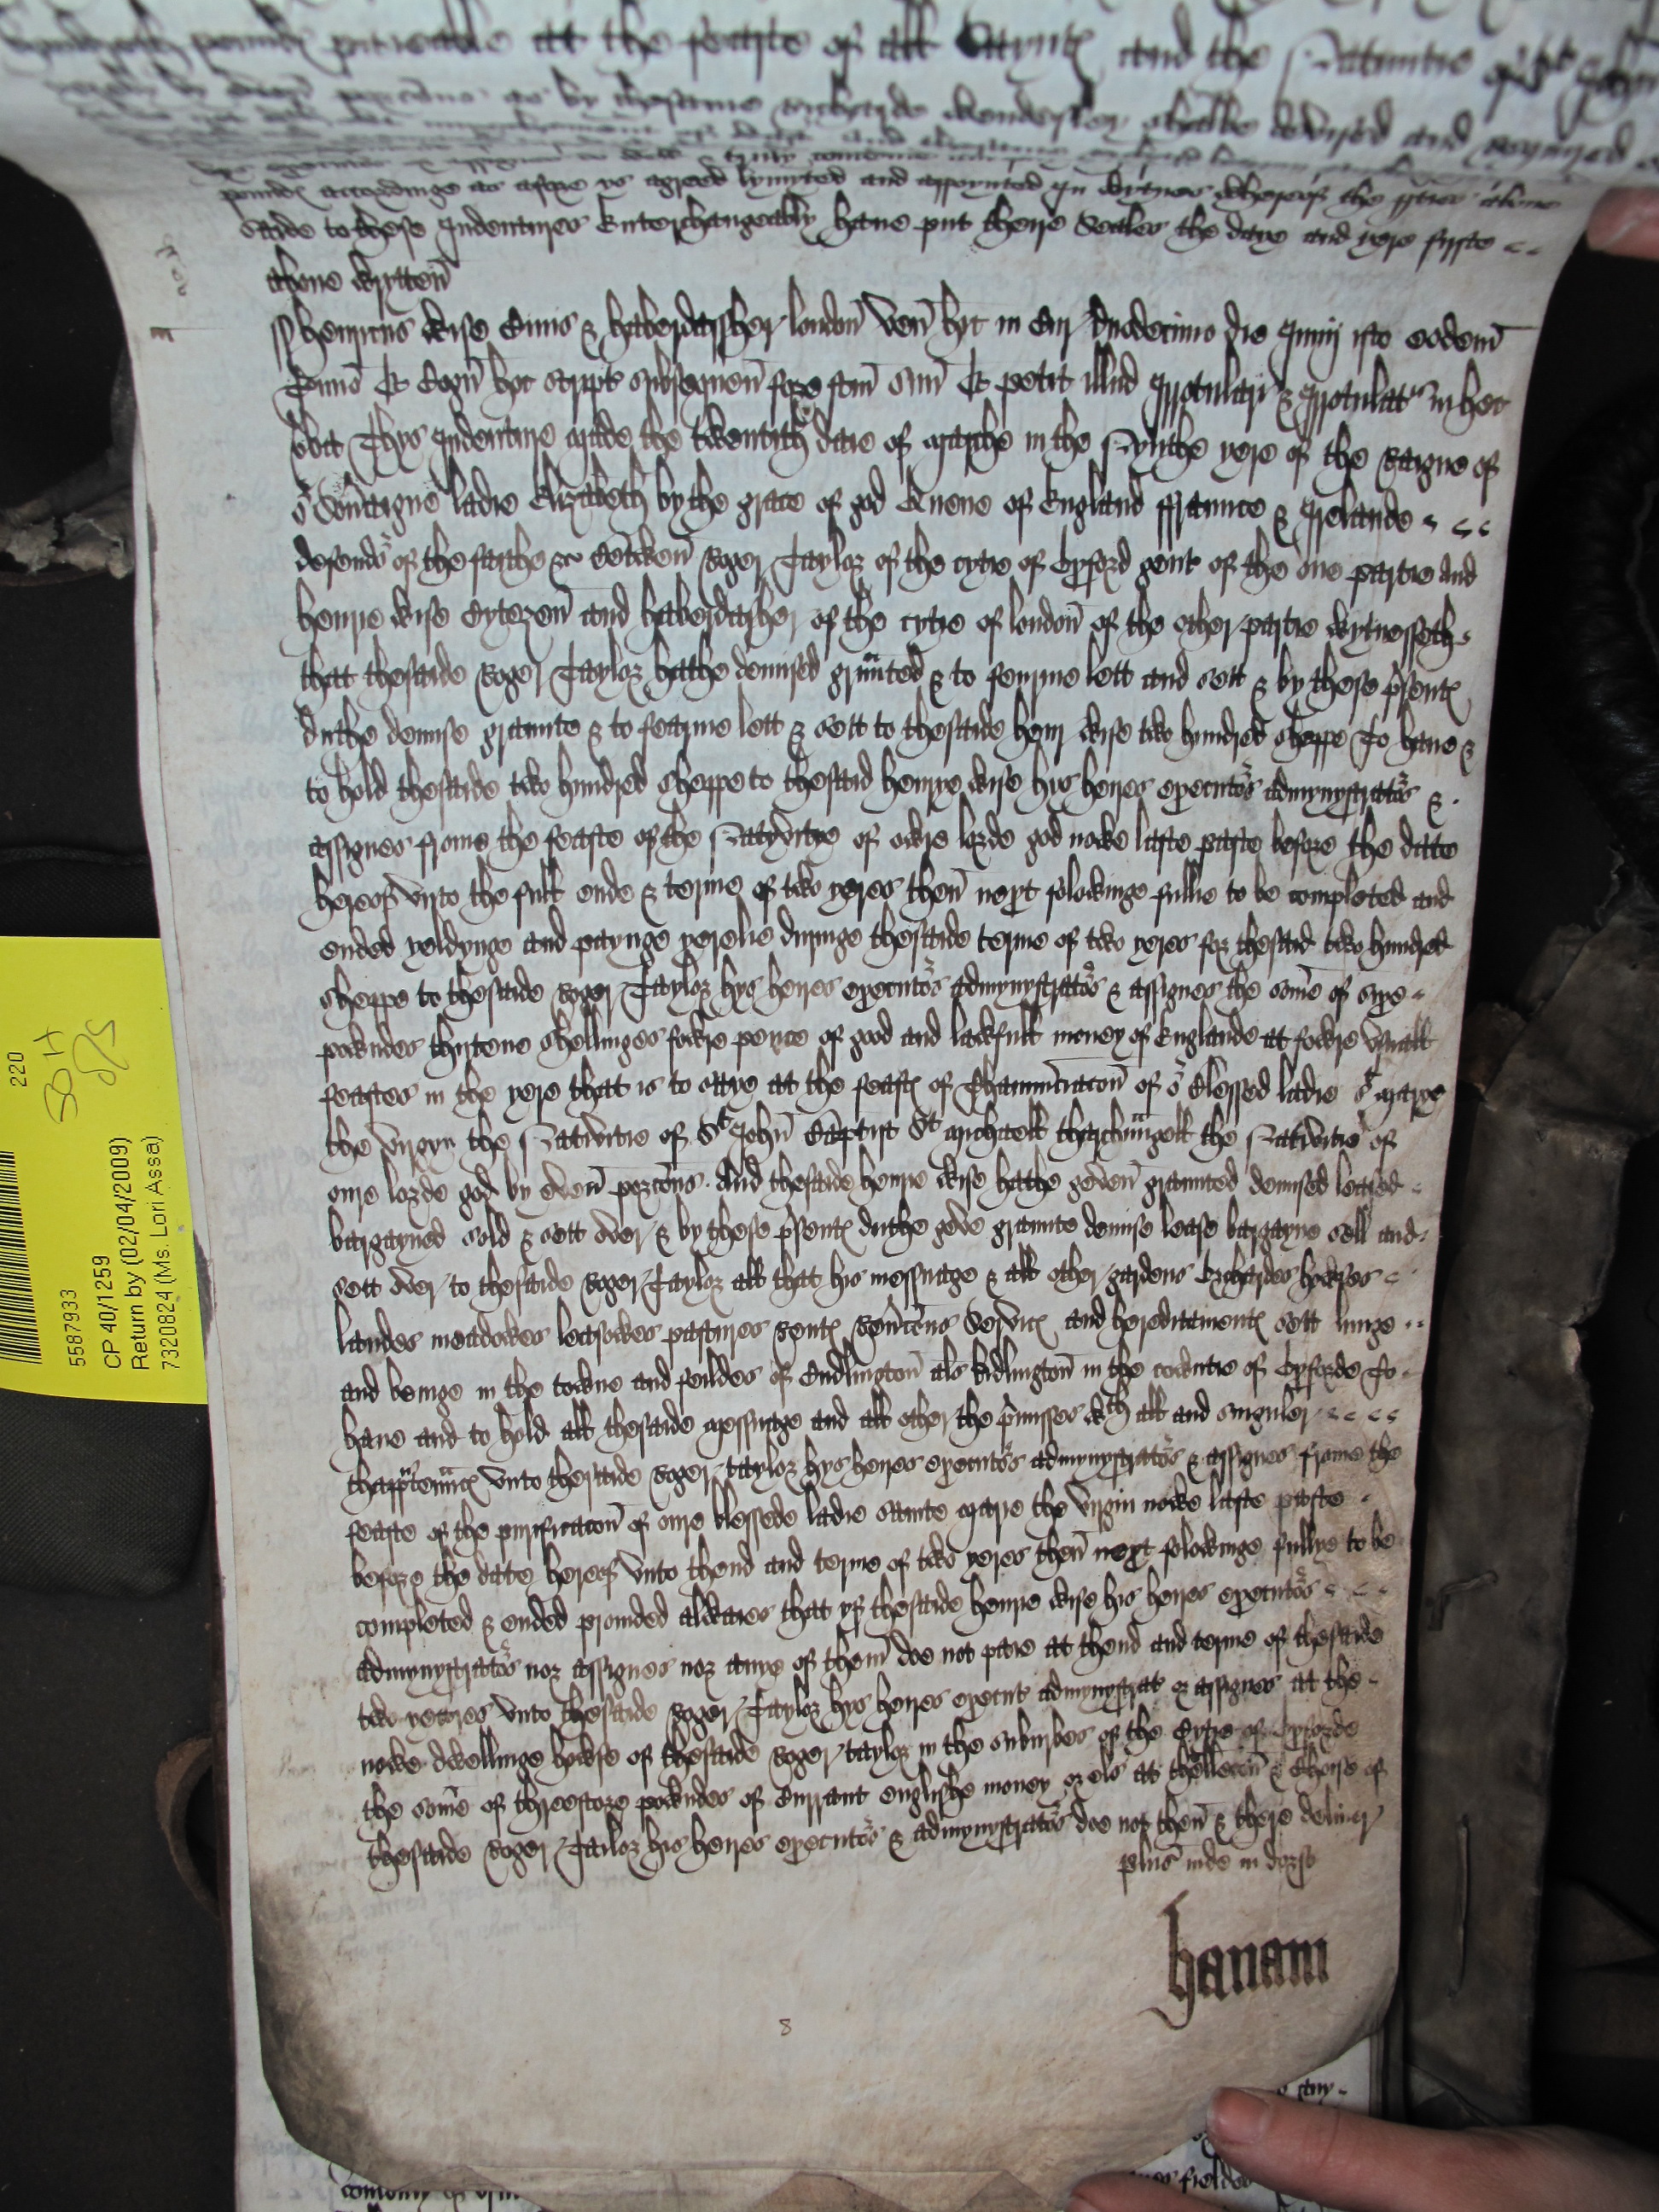 poundes paieable at the feaste of all Saynts and the Natiuitie of St John
porcions as by thesame shalbe devised and
poundes accordinge as afore ys agreed lymyted and appoynted In wytnes whereof the pties aboue
saide to these Indentures Enterchangeably haue put theire Seales the daye and yere fyrste
aboue wrytten
Henricus Wise Civis & haberdassher london ven hic in Cur duodecimo die Junij isto eodem
Tmino Et cogn hoc script subsequen fore scm suu Et petit illud Irrotulari & Irrotulatr in hec
vba Thys Indenture made the twentith daie of Marche in the Nynthe yere of the Raigne of
or Soueraigne ladie Elizabeth by the grace of god Quene of England ffraunce & Irelande
defendor of the faithe &c Betwen Roger Taylor of the cytie of Oxford gent of the one partie and
henrie Wise Cytezen and haberdasher of the cytie of london of the other partie wytnesseth
that thesaide Roger Taylor hathe demised graunted & to fearme lett and sett & by these psents
dothe demise graunte & to fearme lett & sett to thesaide henr Wise two hundred sheppe To haue &
to hold thesaide two hundred sheppe to thesaid henrye Wise his heires executors admynystrators &
assignes frome the feaste of the Natyvitie of owre lorde god nowe laste paste before the datte
hereof vnto the full ende & terme of two yeres then next folowinge fullie to be completed and
ended yeldynge and payinge yerelie duringe thesaide terme of two yeres for thesaid two hundred
sheppe to thesaide Roger Taylor hys heires executors admynystrators & assignes the some of sixe
powndes thyrtene shellinges fowre pence of good and lawfull money of Englande at fowre vsuall
feastes in the yere that is to saye at the feasts of Thannunciacon of or blessed ladie St Marye
the virgyn the Natiuitie of St John Baptist St Michaell tharchangell the Natiuitie of
oure lorde god by even porcons And thesaide henrie Wise hathe geven graunted demised leased
bargayned sold & sett over & by these psents dothe geve graunte demise lease bargayne sell and
sett over to thesaide Roger Taylor all that his messuage & all other gardens Orchardes howses
landes meadowes leasowes pastures Rents Revercons Servics and hereditaments sett linge
and beinge in the towne and feildes of Cudlington als kidlington in the cowntie of Oxforde To
haue and to hold all thesaide messuage and all other the pmisses wth all and singuler
thapptenncs vnto thesaide Roger taylor hys heires executors admynystrators & assignes frome the
feaste of the purificacon of oure blessede ladie Sainte Marie the virgin nowe laste paste
before the date hereof vnto thend and terme of two yeres then next folowinge fullye to be
completed & ended prouided alwaies that yf thesaide henrie Wise his heires executors
admynystrators nor assignes nor anye of them doe not paie at thend and terme of thesaide
two yeares vnto thesaide Roger Taylor hys heires execut admynystrat or assignes at the
nowe dwellinge howse of thesaide Roger taylor in the suburbes of the Cytie of Oxforde
the some of threescore powndes of Currant englishe money or els at thelleccon & Choise of
thesaide Roger Tailor his heires executors & admynystrators doe not then & there deliuer
plus inde in dorso
hanam
8
220
5587933
CP 40/1259
Return by (02/04/2009)
7320824 (Ms. Lori Assa)